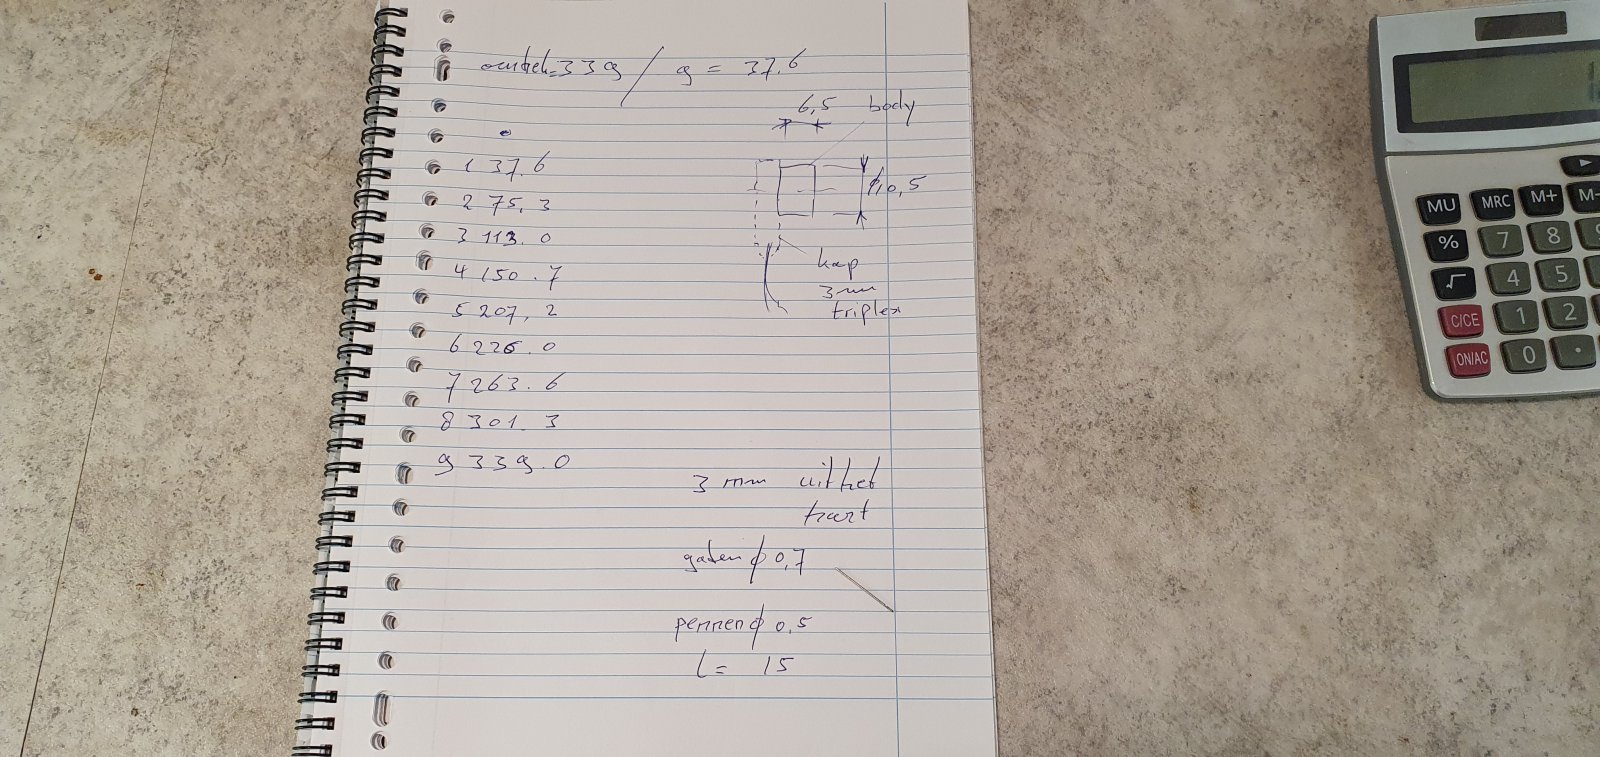 omtrek=339 / 9 = 37.6
6,5 body
1 37.6
ϕ10,5
2 75.3
3 113.0
kap
4 150.7
3mm
5 207,2
triplex
6 226.0
7 263.6
8 301.3
9 339.0
3 mm uit het
hart
gaten ϕ 0,7
pennen ϕ 0,5
l= 15
MU MRC M+ M-
% 7 8
√ 4 5
C/CE 1 2
ON/AC 0 .